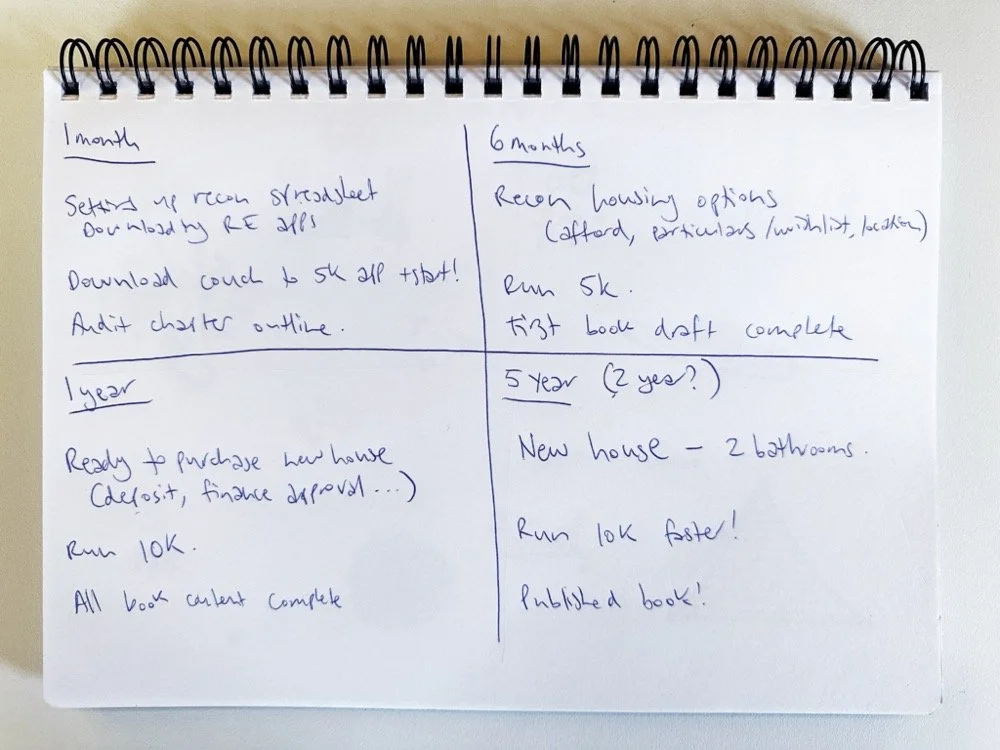 1 month
Setting up recon spreadsheet
Downloading RE apps
Download couch to 5k app + start!
Audit chapter outline.
6 months
Recon housing options
(afford, particulars/wishlist, location)
Run 5k.
First book draft complete
1 year
Ready to purchase new house
(deposit, finance approval...)
Run 10K.
All book content complete
5 year (2 year?)
New house - 2 bathrooms.
Run 10k faster!
Published book!